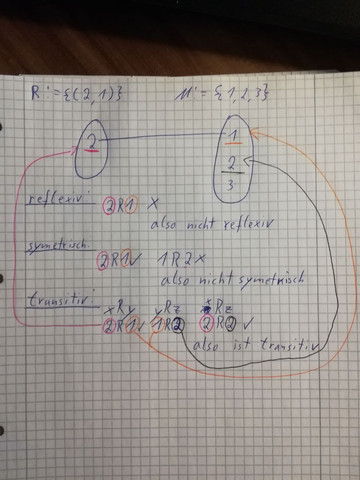 R := {(2,1)} M := {1,2,3}
2 1
2
3
reflexiv: 2R1 X
also nicht reflexiv
symetrisch:
2R1 ✓ 1R2 X
also nicht symetrisch
transitiv: xRy yRz xRz
2R1 ✓ 1R2 2R2 ✓
also ist transitiv